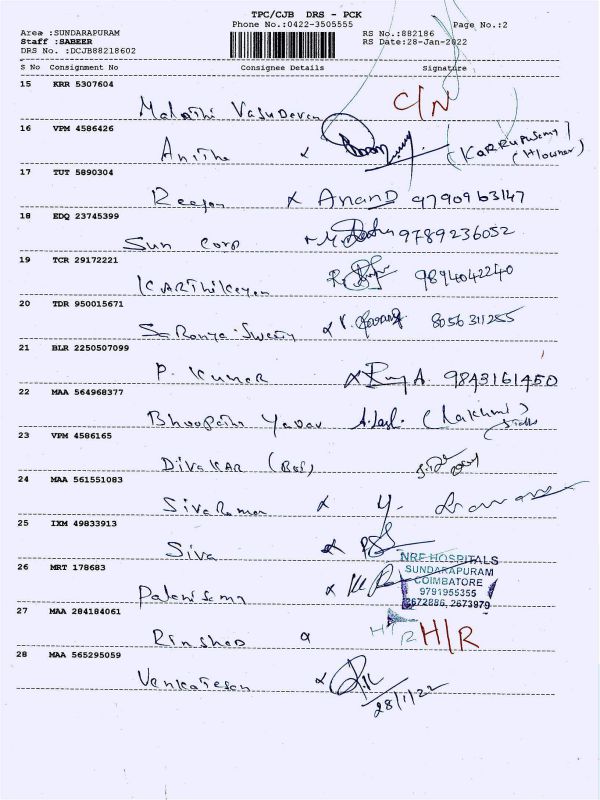 TPC/CJB DRS - PCK
Phone No.:0422-3505555 Page No.:2
Area :SUNDARAPURAM RS No.:882186
Staff :SABEER RS Date:28-Jan-2022
DRS No. :DCJB88218602
S No Consignment No Consignee Details Signature
15 KRR 5307604
Malathi Vasudevan C/N
16 VPM 4586426
Anitha (KARRUPUSAMY)
(H/owner)
17 TUT 5890304
x Anand 9790963147
18 EDQ 23745399
Sun Corp 9789236052
19 TCR 29172221
KARTHIKeyan 9894042240
20 TDR 950015671
8056311255
21 BLR 2250507099
P. Kumar A. 9843161450
22 MAA 564968377
Bhoopathi Yadav (Lakhmi)
23 VPM 4586165
DIVAKAR
24 MAA 561551083
SivaRaman x
25 IXM 49833913
Siva x
NRF HOSPITALS
SUNDARAPURAM
COIMBATORE
9791955355
2672886, 2673979
26 MRT 178683
Palanisamy x
27 MAA 284184061
Rinshad H/R H/R
28 MAA 565295059
Venkatesan x
28/1/22